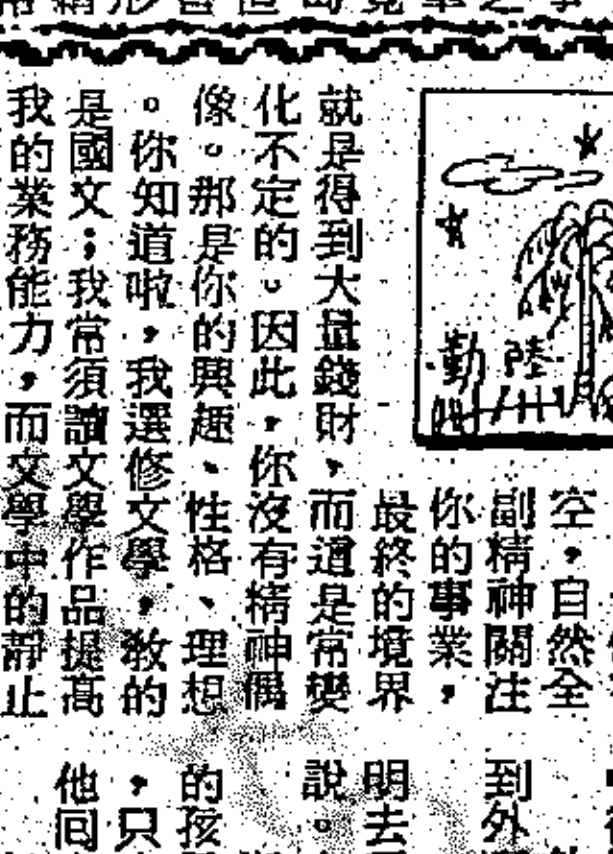 陸
勤
空，自然全
副精神關注
你的事業，
最終的境界
就是得到大量錢財，而道是常變
化不定的。因此，你沒有精神偶
像。那是你的興趣、性格、理想
。你知道啦，我選修文學，教的
是國文；我常須讀文學作品提高
我的業務能力，而文學中的靜止
到外
明去
說。
的孩
，只
他回